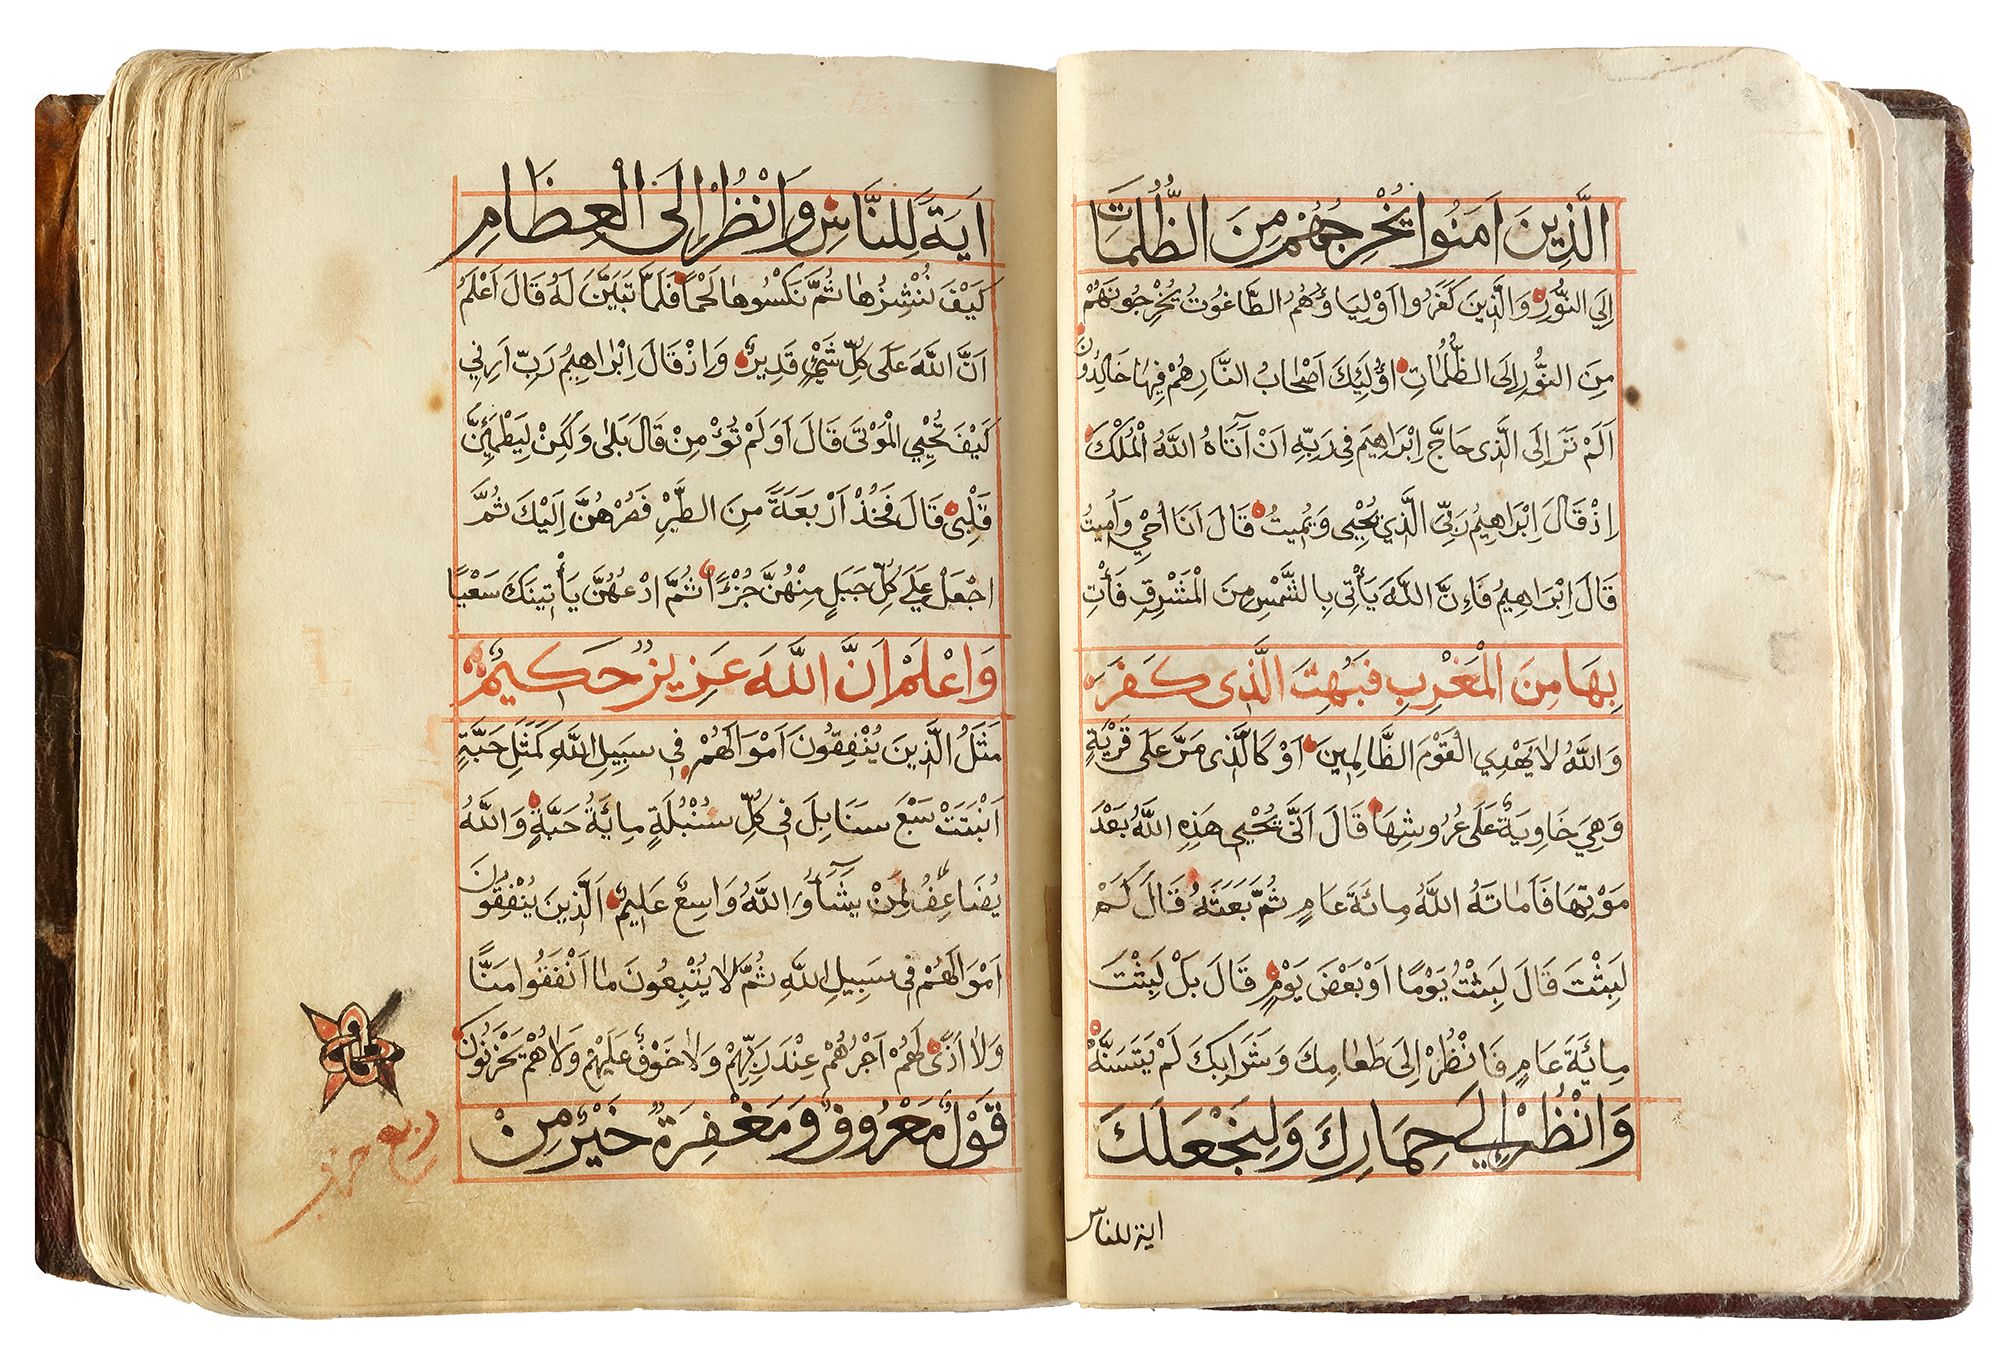 الَّذِينَ اَمَنُوا يُخْرِجُهُمْ مِنَ الظُّلُمَاتِ
اِلَى النُّورِ وَالَّذِينَ كَفَرُوا اَوْلِيَاؤُهُمُ الطَّاغُوتُ يُخْرِجُونَهُمْ
مِنَ النُّورِ اِلَى الظُّلُمَاتِ اُولَئِكَ اَصْحَابُ النَّارِ هُمْ فِيهَا خَالِدُونَ
اَلَمْ تَرَ اِلَى الَّذِى حَاجَّ اِبْرَاهِيمَ فِى رَبِّهِ اَنْ آتَاهُ اللَّهُ الْمُلْكَ
اِذْ قَالَ اِبْرَاهِيمُ رَبِّىَ الَّذِي يُحْيِى وَيُمِيتُ قَالَ اَنَا اُحْيِ وَاُمِيتُ
قَالَ اِبْرَاهِيمُ فَاِنَّ اللَّهَ يَأْتِى بِالشَّمْسِ مِنَ الْمَشْرِقِ فَأْتِ
بِهَا مِنَ الْمَغْرِبِ فَبُهِتَ الَّذِى كَفَرَ
وَاللَّهُ لَا يَهْدِي الْقَوْمَ الظَّالِمِينَ اَوْ كَالَّذِى مَرَّ عَلَى قَرْيَةٍ
وَهِيَ خَاوِيَةٌ عَلَى عُرُوشِهَا قَالَ اَنَّى يُحْيِي هَذِهِ اللَّهُ بَعْدَ
مَوْتِهَا فَاَمَاتَهُ اللَّهُ مِائَةَ عَامٍ ثُمَّ بَعَثَهُ قَالَ كَمْ
لَبِثْتَ قَالَ لَبِثْتُ يَوْمًا اَوْ بَعْضَ يَوْمٍ قَالَ بَلْ لَبِثْتَ
مِائَةَ عَامٍ فَانْظُرْ اِلَى طَعَامِكَ وَشَرَابِكَ لَمْ يَتَسَنَّهْ
وَانْظُرْ اِلَى حِمَارِكَ وَلِنَجْعَلَكَ
اية للناس
اَيَةً لِلنَّاسِ وَانْظُرْ اِلَى الْعِظَامِ
كَيْفَ نُنْشِزُهَا ثُمَّ نَكْسُوهَا لَحْمًا فَلَمَّا تَبَيَّنَ لَهُ قَالَ اَعْلَمُ
اَنَّ اللَّهَ عَلَى كُلِّ شَيْءٍ قَدِيرٌ وَاِذْ قَالَ اِبْرَاهِيمُ رَبِّ اَرِنِي
كَيْفَ تُحْيِي الْمَوْتَى قَالَ اَوَلَمْ تُؤْمِنْ قَالَ بَلَى وَلَكِنْ لِيَطْمَئِنَّ
قَلْبِى قَالَ فَخُذْ اَرْبَعَةً مِنَ الطَّيْرِ فَصُرْهُنَّ اِلَيْكَ ثُمَّ
اجْعَلْ عَلَى كُلِّ جَبَلٍ مِنْهُنَّ جُزْءًا ثُمَّ ادْعُهُنَّ يَأْتِينَكَ سَعْيًا
وَاعْلَمْ اَنَّ اللَّهَ عَزِيزٌ حَكِيمٌ
مَثَلُ الَّذِينَ يُنْفِقُونَ اَمْوَالَهُمْ فِى سَبِيلِ اللَّهِ كَمَثَلِ حَبَّةٍ
اَنْبَتَتْ سَبْعَ سَنَابِلَ فِى كُلِّ سُنْبُلَةٍ مِائَةُ حَبَّةٍ وَاللَّهُ
يُضَاعِفُ لِمَنْ يَشَآءُ وَاللَّهُ وَاسِعٌ عَلِيمٌ الَّذِينَ يُنْفِقُونَ
اَمْوَالَهُمْ فِى سَبِيلِ اللَّهِ ثُمَّ لَا يُتْبِعُونَ مَا اَنْفَقُوا مَنًّا
وَلَا اَذًى لَهُمْ اَجْرُهُمْ عِنْدَ رَبِّهِمْ وَلَا خَوْفٌ عَلَيْهِمْ وَلَا هُمْ يَحْزَنُونَ
قَوْلٌ مَعْرُوفٌ وَمَغْفِرَةٌ خَيْرٌ مِنْ
ربع حزب